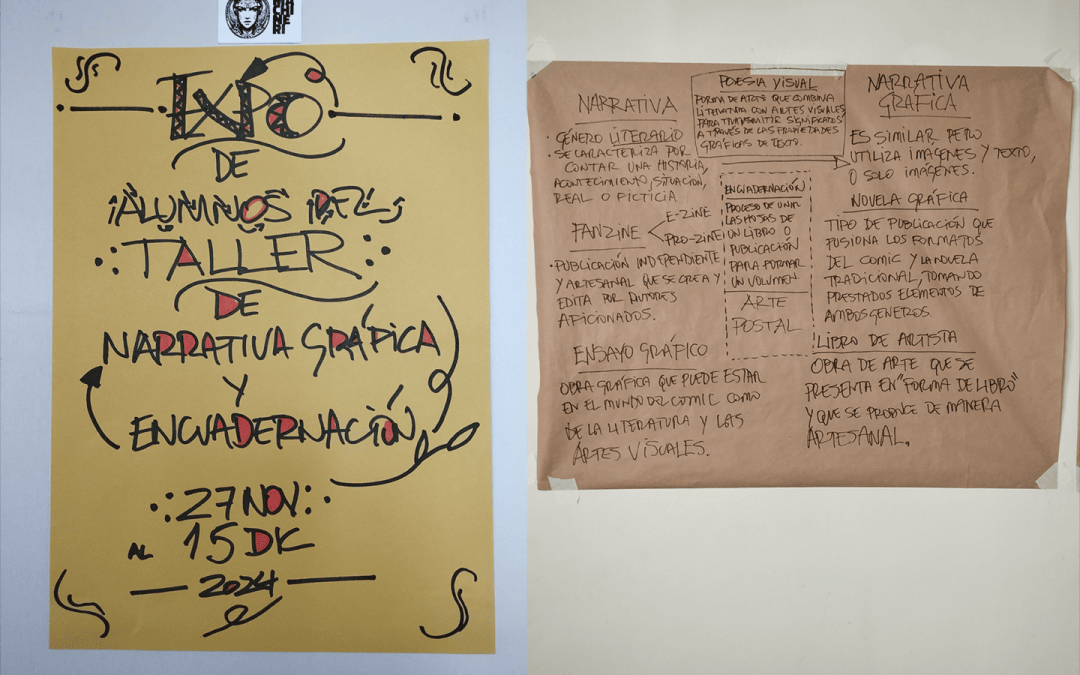 EXPO
DE
¡ALUMNOS DEL
TALLER
DE
NARRATIVA GRÁFICA
Y
ENCUADERNACIÓN
27 NOV
AL 15 DIC
2024
NARRATIVA
· GÉNERO LITERARIO
· SE CARACTERIZA POR
CONTAR UNA HISTORIA,
ACONTECIMIENTO, SITUACIÓN,
REAL O FICTICIA
FANZINE
E-ZINE
PRO-ZINE
· PUBLICACIÓN INDEPENDIENTE
Y ARTESANAL QUE SE CREA Y
EDITA POR AUTORES
AFICIONADOS.
ENSAYO GRÁFICO
OBRA GRÁFICA QUE PUEDE ESTAR
EN EL MUNDO DEL COMIC COMO
DE LA LITERATURA Y LAS
ARTES VISUALES.
POESIA VISUAL
FORMA DE ARTE QUE COMBINA
LITERATURA CON ARTES VISUALES
PARA TRANSMITIR SIGNIFICADOS
A TRAVÉS DE LAS PROPIEDADES
GRÁFICAS DE TEXTO.
ENCUADERNACIÓN
PROCESO DE UNIR
LAS HOJAS DE
UN LIBRO O
PUBLICACIÓN
PARA FORMAR
UN VOLUMEN
ARTE
POSTAL
NARRATIVA
GRÁFICA
ES SIMILAR PERO
UTILIZA IMÁGENES Y TEXTO,
O SOLO IMÁGENES.
NOVELA GRÁFICA
TIPO DE PUBLICACIÓN QUE
FUSIONA LOS FORMATOS
DEL COMIC Y LA NOVELA
TRADICIONAL, TOMANDO
PRESTADOS ELEMENTOS DE
AMBOS GENEROS.
LIBRO DE ARTISTA
OBRA DE ARTE QUE SE
PRESENTA EN "FORMA DE LIBRO"
Y QUE SE PRODUCE DE MANERA
ARTESANAL.